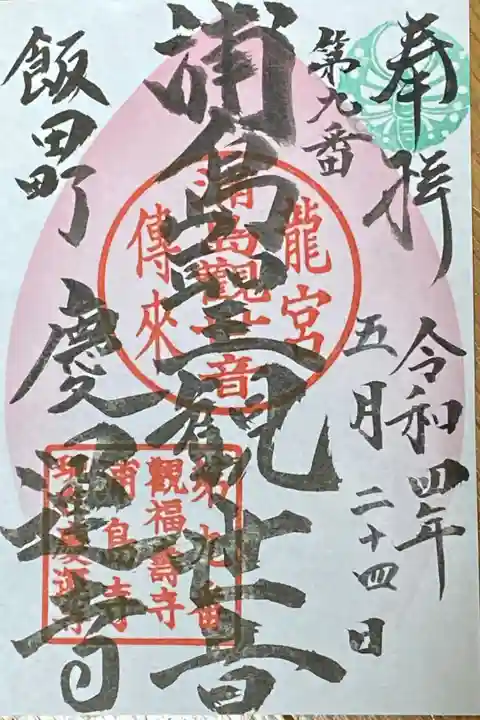 奉拝
令和四年
第九番
五月二十四日
浦島聖観世音
飯田町 慶運寺
龍宮
浦島觀世音
傳來
第九番
觀福壽寺
浦島寺
慶運寺